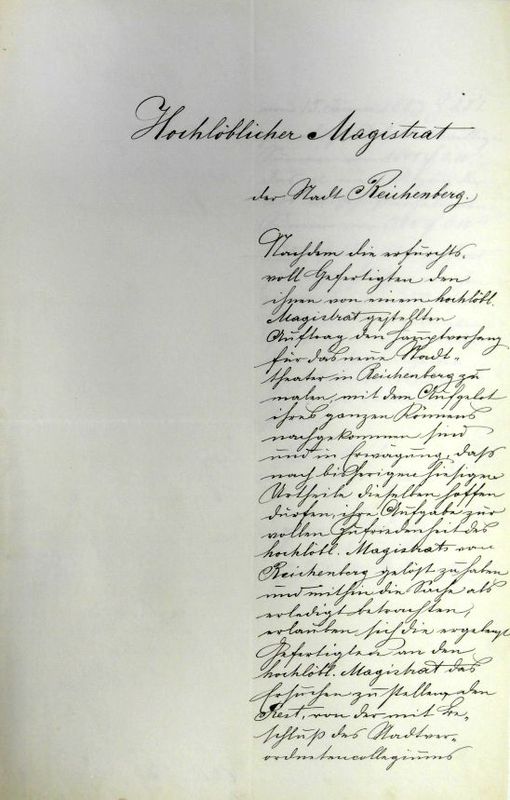 Hochlöblicher Magistrat
der Stadt Reichenberg.
Nachdem die erfurchts-
voll Gefertigten den
ihnen von einem hochlöbl.
Magistrat gestellten
Auftrag den Hauptvorhang
für das neue Stadt-
theater in Reichenberg zu
malen, mit dem Aufgebot
ihres ganzen Könnens
nachgekommen sind
und in Erwägung, daß
nach bisherigem hiesigen
Urtheile dieselben hoffen
dürfen, ihre Aufgabe zur
vollen Zufriedenheit des
hochlöbl. Magistrats von
Reichenberg gelöst zu haben
und mithin die Sache als
erledigt betrachten,
erlauben sich die ergebenst
Gefertigten an den
hochlöbl. Magistrat das
Ersuchen zu stellen, den
Rest, von der mit Be-
schluß des Stadtver-
ordnetencollegiums